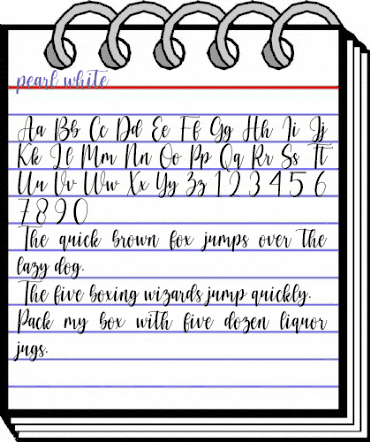 pearl white
Aa Bb Cc Dd Ee Ff Gg Hh Ii Jj
Kk Ll Mm Nn Oo Pp Qq Rr Ss Tt
Uu Vv Ww Xx Yy Zz 1 2 3 4 5 6
7 8 9 0
The quick brown fox jumps over the
lazy dog.
The five boxing wizards jump quickly.
Pack my box with five dozen liquor
jugs.